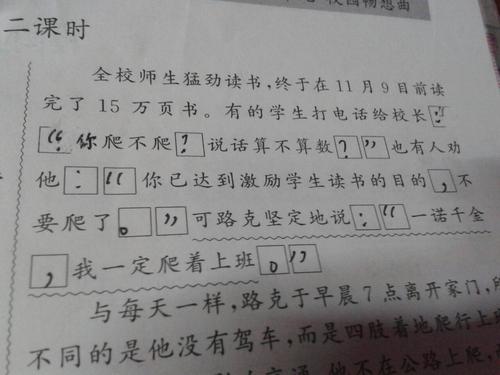 校园畅想曲
二课时
全校师生猛劲读书,终于在11月9日前读
完了15万页书。有的学生打电话给校长:
“你爬不爬?说话算不算数?”也有人劝
他:“你已达到激励学生读书的目的,不
要爬了。”可路克坚定地说:“一诺千金
,我一定爬着上班。”
与每天一样,路克于早晨7点离开家门,所
不同的是他没有驾车,而是四肢着地爬行上
他不在公路上爬,